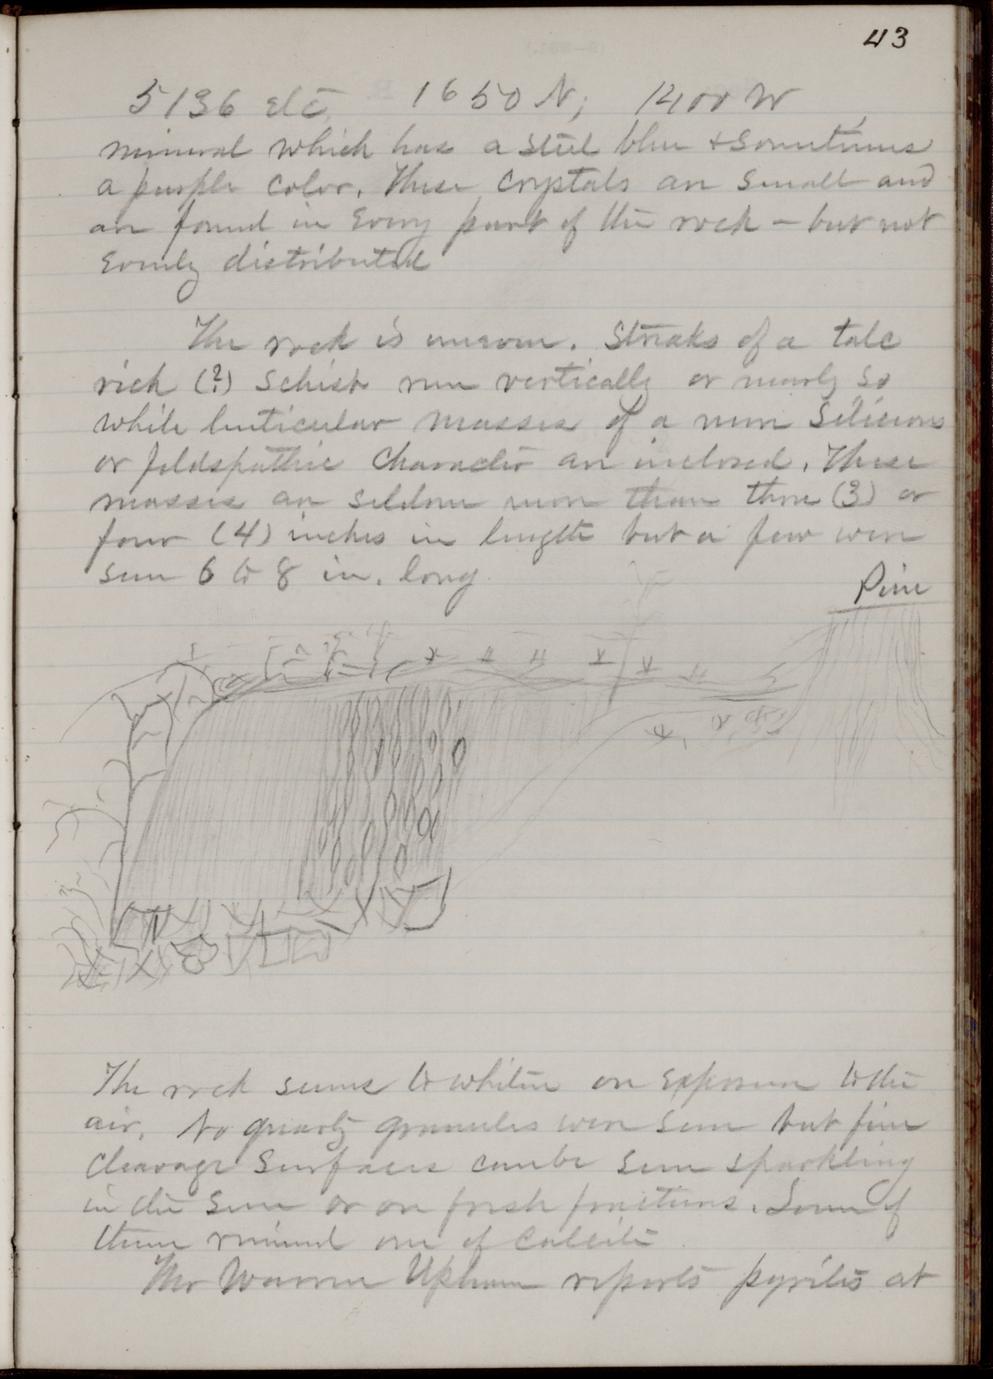 43
5136 etc 1650 N, 1400 W
mineral which has a steel blue & sometimes
a purple color. These crystals are small and
are found in every part of the rock – but not
evenly distributed
The rock is uneven. Streaks of a talc
rich (?) schist run vertically or nearly so
while lenticular masses of a more silicious
or feldspathic character are inclosed. These
masses are seldom more than three (3) or
four (4) inches in length but a few were
seen 6 to 8 in. long
Pine
The rock seems to whiten on exposure to the
air. No quartz granules were seen but fine
cleavage surfaces can be seen sparkling
in the sun or on fresh fractures. Some of
them remind one of calcite
Mr Warren Upham reports pyrites at